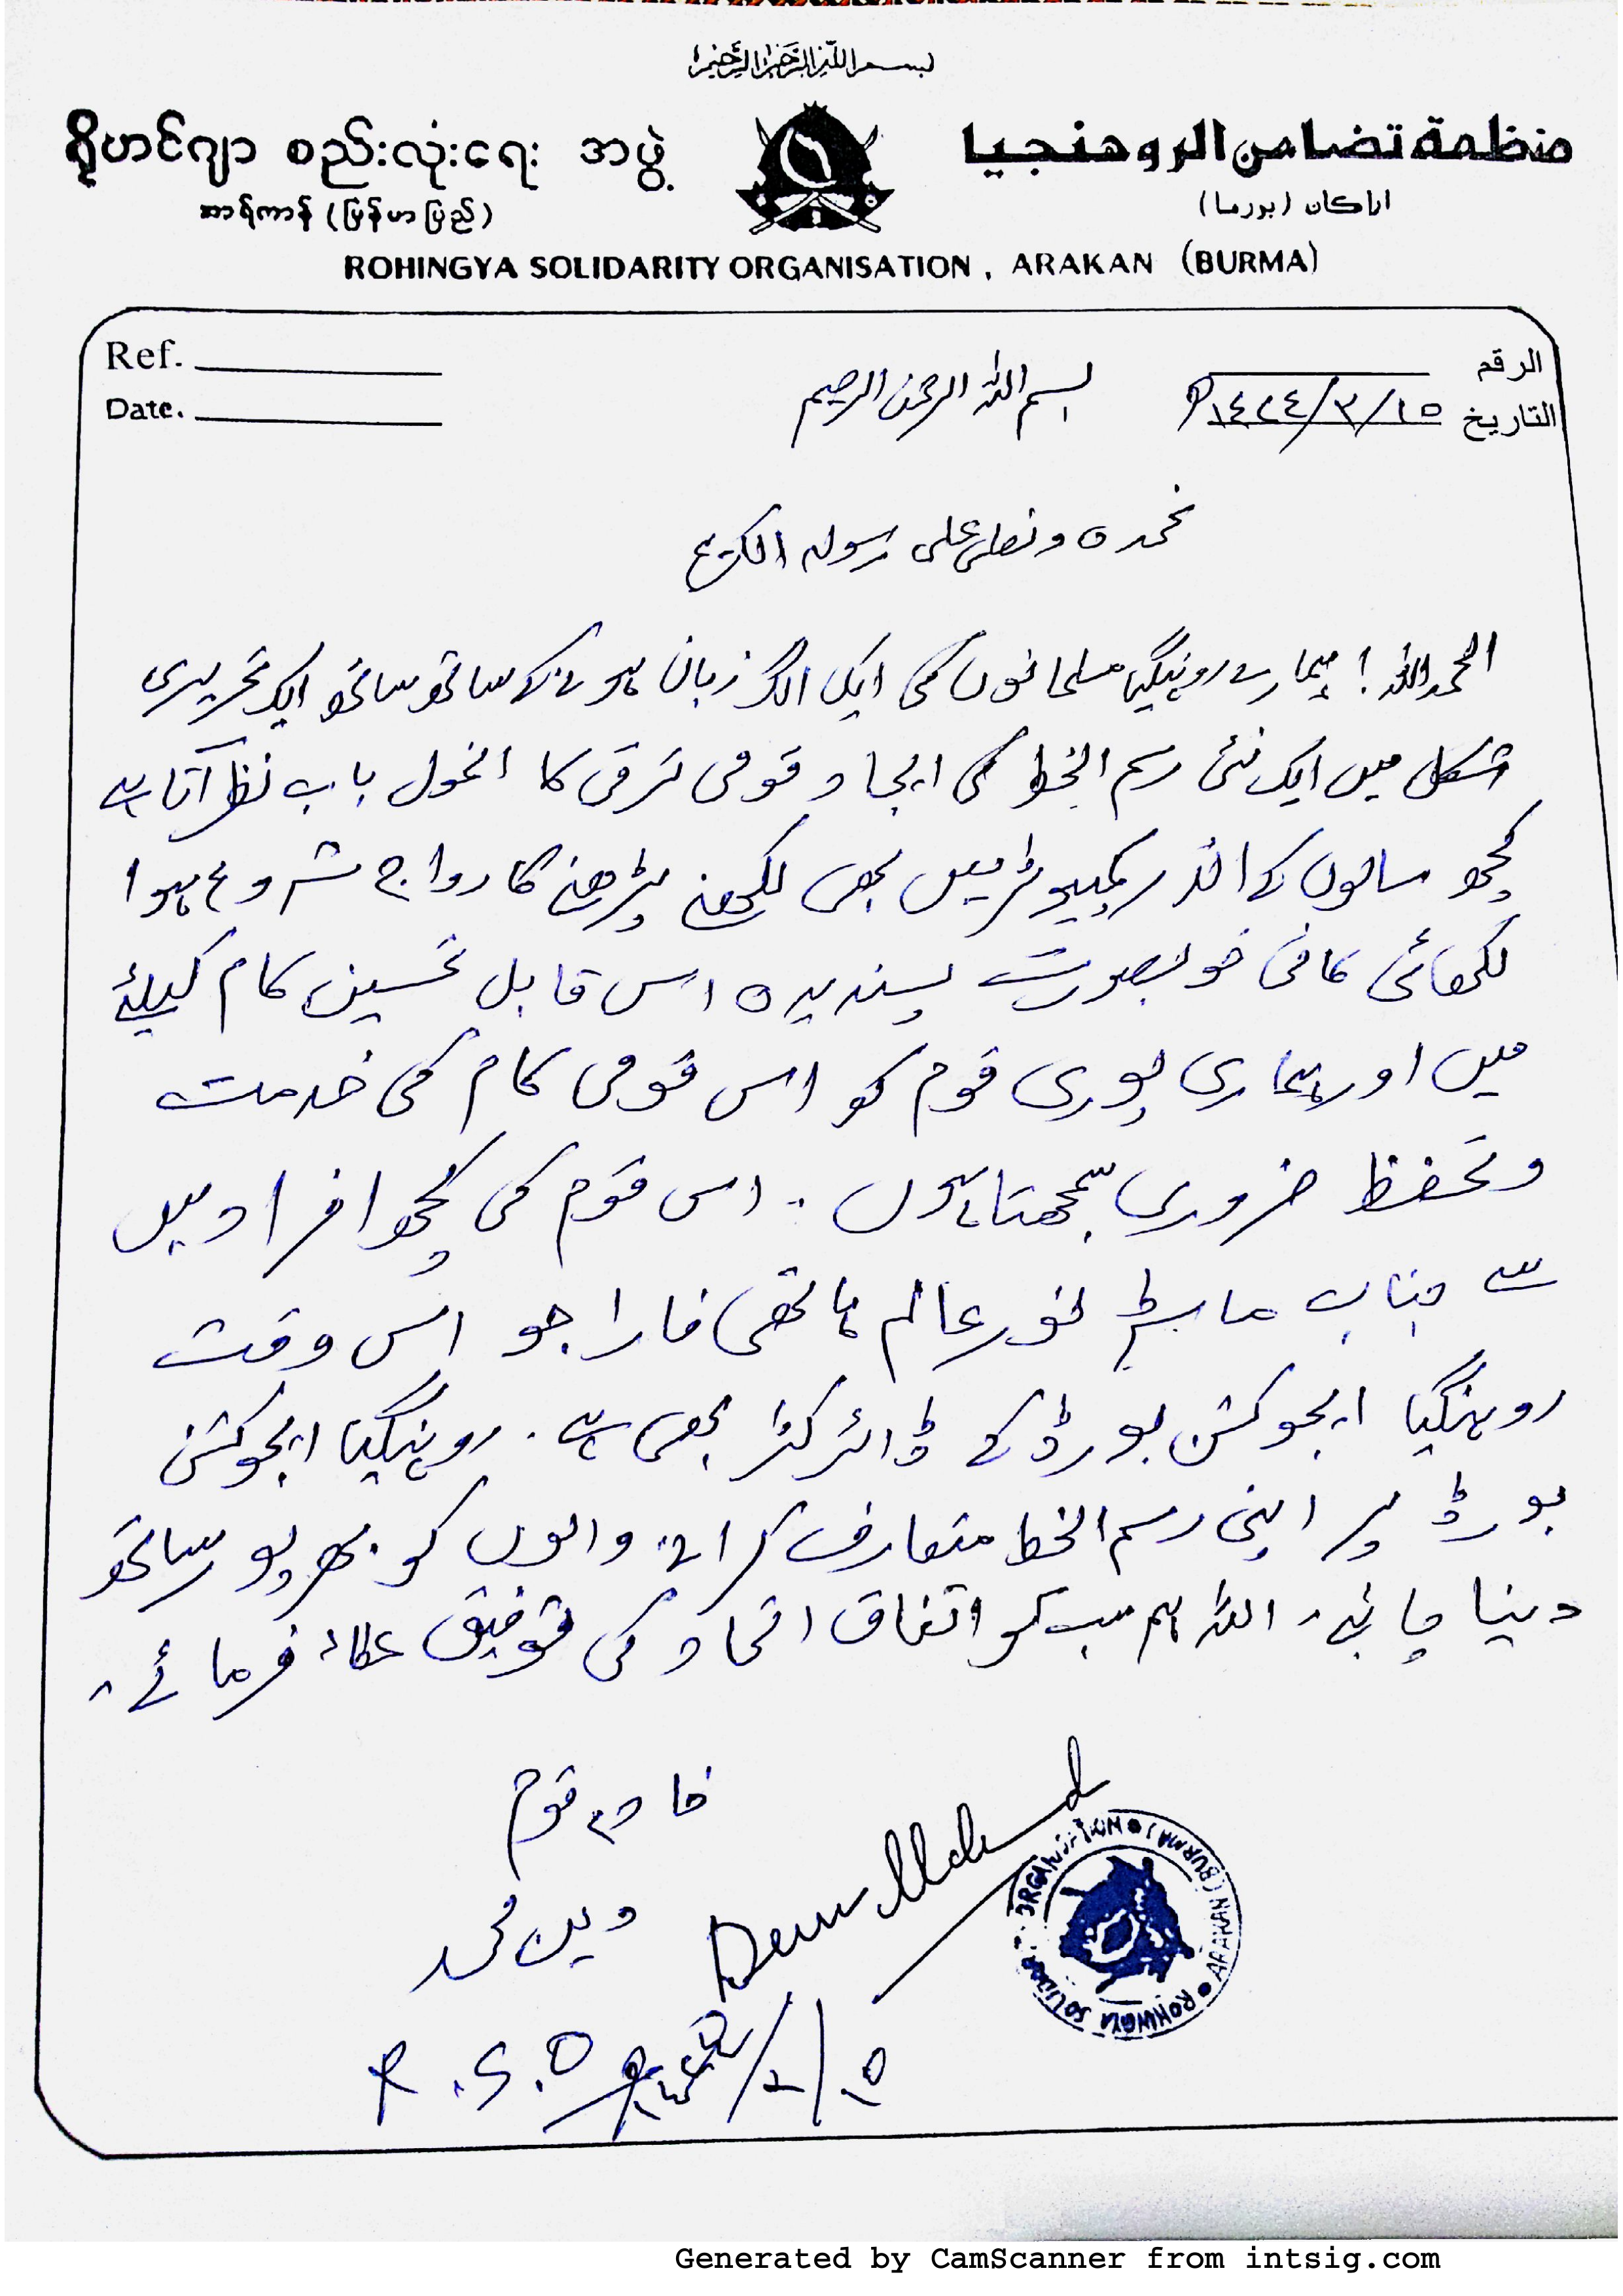 بسم الله الرحمن الرحيم
ရိုဟင်ဂျာ စည်းလုံးရေး အဖွဲ့
منظمة تضامن الروهنجيا
အာရ်ကာန် (မြန်မာပြည်)
اراكان (بورما)
ROHINGYA SOLIDARITY ORGANISATION, ARAKAN (BURMA)
Ref.
الرقم
Date.
التاريخ ١٥/٣/١٤٢٤ھ
بسم اللہ الرحمن الرحیم
نحمدہ ونصلی علی رسولہ الکریم
الحمدللہ! ہمارے روہنگیا مسلمانوں کی ایک الگ زبان ہونے کے ساتھ ساتھ ایک تحریری
شکل میں ایک نئی رسم الخط کی ایجاد قومی ترقی کا انمول باب نظر آتا ہے
کچھ سالوں کے اندر کمپیوٹر میں بھی لکھنے پڑھنے کا رواج شروع ہوا
لکھائی کافی خوبصورت پسندیدہ اس قابل تحسین کام کیلئے
میں اور ہماری پوری قوم کو اس قومی کام کی خدمت
وتحفظ ضروری سمجھتا ہوں ۔ اس قوم کی کچھ افراد میں
سے جناب ماسٹر نور عالم ہاتھی فارا جو اس وقت
روہنگیا ایجوکشن بورڈ کے ڈائرکٹر بھی ہے ۔ روہنگیا ایجوکشن
بورڈ پر اپنی رسم الخط متعارف کرانے والوں کو بھرپور ساتھ
دینا چاہئے ۔ اللہ ہم سب کو اتفاق اتحاد کی توفیق عطاء فرمائے ۔
خادم قوم
دین محمد
R.S.O
ROHINGYA SOLIDARITY ORGANISATION • ARAKAN (BURMA) •
Generated by CamScanner from intsig.com